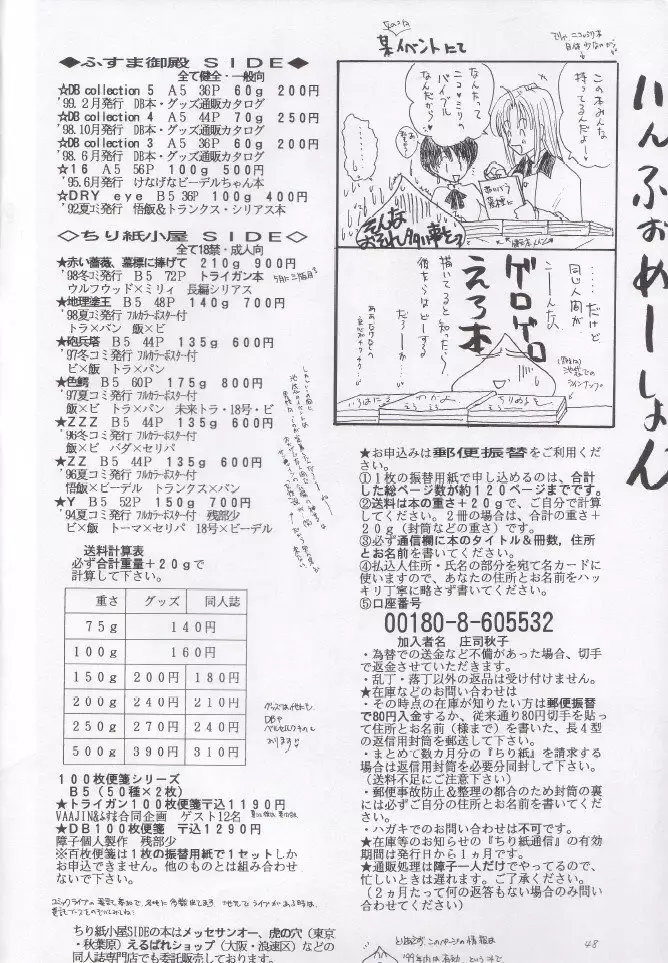 いんふぉめーしょん
◆ふすま御殿 SIDE◆
全て健全・一般向
☆DB collection 5 A5 36P 60g 200円
'99.2月発行 DB本・グッズ通販カタログ
☆DB collection 4 A5 44P 70g 250円
'98.10月発行 DB本・グッズ通販カタログ
☆DB collection 3 A5 36P 60g 200円
'98.6月発行 DB本・グッズ通販カタログ
☆16 A5 56P 100g 500円
'95.6月発行 けなげなビーデルちゃん本
☆DRY eye B5 36P 100g 400円
'92夏コミ発行 悟飯&トランクス・シリアス本
◇ちり紙小屋 SIDE◇
全て18禁・成人向
★赤い薔薇、墓標に捧げて 210g 900円
'98冬コミ発行 B5 72P トライガン本
ウルフウッド×ミリィ 長編シリアス
★地理塗王 B5 48P 140g 700円
'98夏コミ発行 フルカラーポスター付
トラ×パン 飯×ビ
★砲兵塔 B5 44P 135g 600円
'97冬コミ発行 フルカラーポスター付
ビ×飯 トラ×パン
★色鰐 B5 60P 175g 800円
'97夏コミ発行 フルカラーポスター付
飯×ビ トラ×パン 未来トラ・18号・ビ
★ZZZ B5 44P 135g 600円
'96冬コミ発行 フルカラーポスター付
飯×ビ バダ×セリパ
★ZZ B5 44P 135g 600円
'96夏コミ発行 フルカラーポスター付
悟飯×ビーデル トランクス×パン
★Y B5 52P 150g 700円
'94夏コミ発行 フルカラーポスター付 残部少
ビ×飯 トーマ×セリパ 18号×ビーデル
送料計算表
必ず合計重量+20gで
計算して下さい。
重さ グッズ 同人誌
75g 140円
100g 160円
150g 200円 180円
200g 240円 210円
250g 270円 240円
500g 390円 310円
グッズは他にも
DBや
ベルセルクのも
あります
100枚便箋シリーズ
B5(50種×2枚)
★トライガン100枚便箋〒込1190円
VAAJIN&S村合同企画 ゲスト12名
★DB100枚便箋 〒込1290円
障子個人製作 残部少
※百枚便箋は1枚の振替用紙で1セットしか
お申込できません。他のものとは組み合わせ
ないで下さい。
ちり紙小屋SIDEの本はメッセサンオー、虎の穴(東京
・秋葉原)えるぱれショップ(大阪・浪速区)などの
同人誌専門店でも委託販売しております。
某イベントにて
この本みんな
持ってるんだよー
なんたって
ニコ×ミリの
バイブル
なんだから
そんな
おそれタタい事をっ
……だけど
同じ人間が
こーんなの
ゲロゲロ
えろ本
描いてると知ったら
後ろからはどーする
だろーか…
★お申込みは郵便振替をご利用くだ
さい。
①1枚の振替用紙で申し込めるのは、合計
した総ページ数が約120ページまでです。
②送料は本の重さ+20gで、ご自分で計算
してください。2冊の場合は、合計の重さ+
20g(封筒などの重さ)です。
③必ず通信欄に本のタイトル&冊数、住所
とお名前を書いてください。
④払込人住所・氏名の部分を宛て名カードに
使いますので、あなたの住所とお名前をハッ
キリ丁寧に略さず書いてください。
⑤口座番号
00180-8-605532
加入者名 庄司秋子
・為替での送金など不備があった場合、切手
で返金させていただきます。
・乱丁・落丁以外の返品は受け付けません。
★在庫などのお問い合わせは
・その時点の在庫が知りたい方は郵便振替
で80円入金するか、従来通り80円切手を貼っ
て住所とお名前(様まで)を書いた、長4型
の返信用封筒を郵送して下さい。
・まとめて数カ月分の『ちり紙』を請求する
場合は返信用封筒を必要分同封して下さい。
(送料不足にご注意下さい)
・郵便事故防止&整理の都合のため封筒の裏
には必ずご自分の住所とお名前を書いてくだ
さい。
・ハガキでのお問い合わせは不可です。
★在庫等のお知らせの『ちり紙通信』の有効
期間は発行日から1ヵ月です。
★通販処理は障子一人だけでやってるので、
忙しいときは遅れます。ご了承ください。
(2ヵ月たって何の返答もない場合のみ問い
合わせてください)
とりあえず、このページの情報は
'99年内は有効、という事で
48